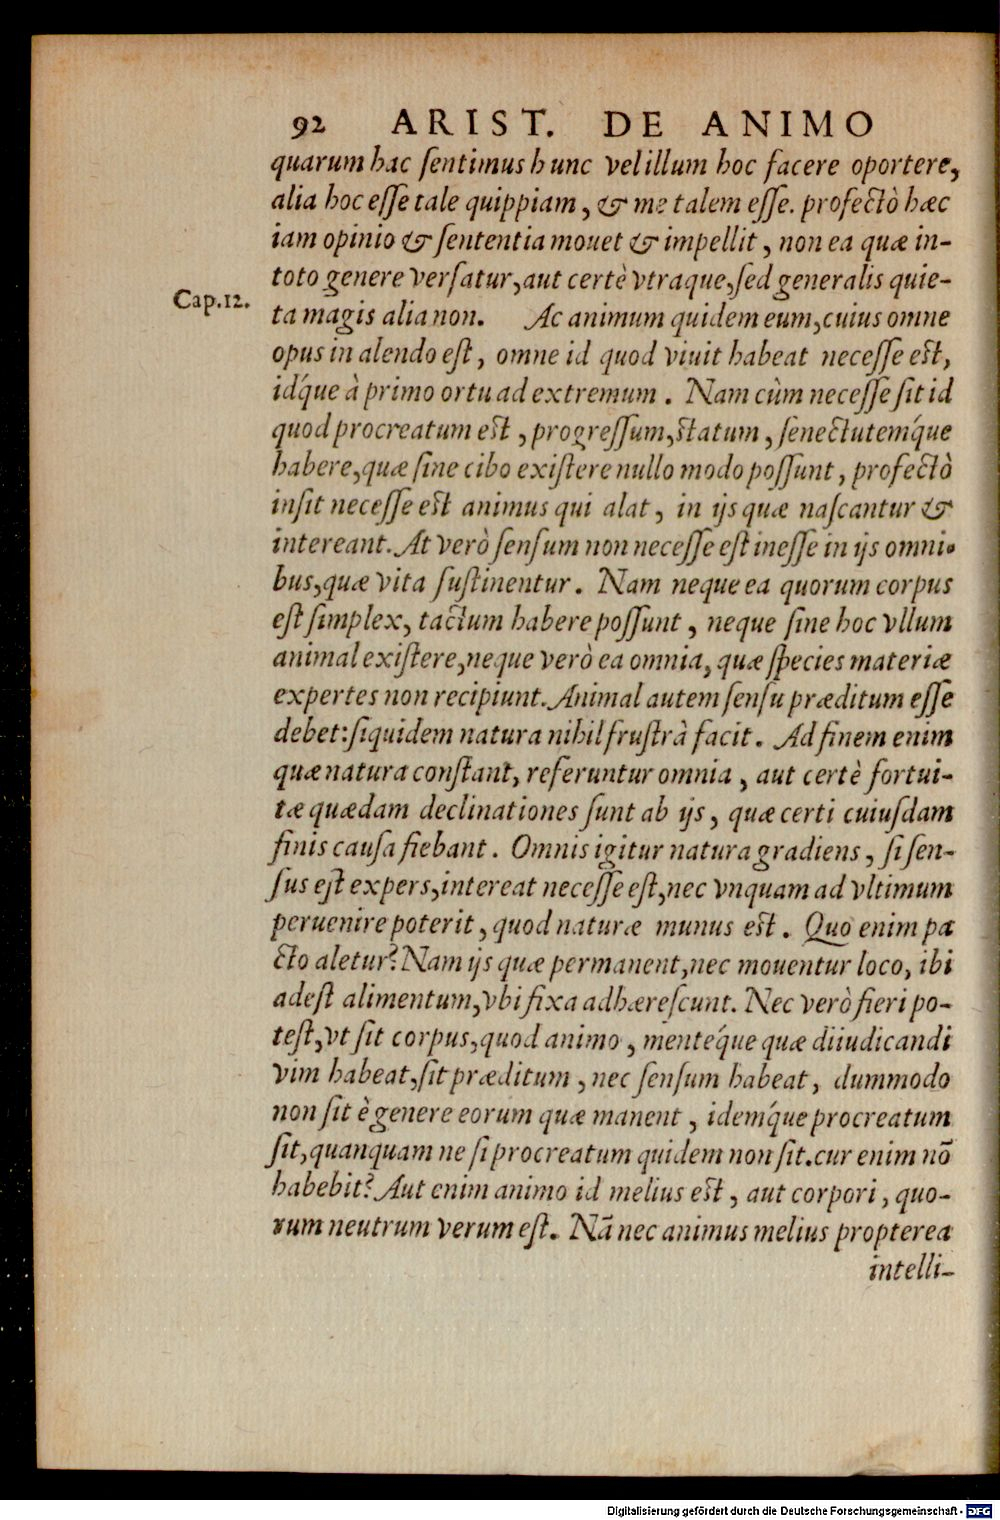 92 ARIST. DE ANIMO
quarum hac ſentimus hunc vel illum hoc facere oportere,
alia hoc eſſe tale quippiam, & me talem eſſe. profectò hæc
iam opinio & ſententia mouet & impellit, non ea quæ in-
toto genere verſatur, aut certè vtraque, ſed generalis quie-
Cap.12.
ta magis alia non. Ac animum quidem eum, cuius omne
opus in alendo eſt, omne id quod viuit habeat neceſſe eſt,
idq́ue à primo ortu ad extremum. Nam cùm neceſſe ſit id
quod procreatum eſt, progreſſum, ſtatum, ſenectutemq́ue
habere, quæ ſine cibo exiſtere nullo modo poſſunt, profectò
inſit neceſſe eſt animus qui alat, in ijs quæ naſcantur &
intereant. At verò ſenſum non neceſſe eſt ineſſe in ijs omni-
bus, quæ vita ſuſtinentur. Nam neque ea quorum corpus
eſt ſimplex, tactum habere poſſunt, neque ſine hoc vllum
animal exiſtere, neque verò ea omnia, quæ ſpecies materiæ
expertes non recipiunt. Animal autem ſenſu præditum eſſe
debet: ſiquidem natura nihil fruſtrà facit. Ad finem enim
quæ natura conſtant, referuntur omnia, aut certè fortui-
tæ quædam declinationes ſunt ab ijs, quæ certi cuiuſdam
finis cauſa fiebant. Omnis igitur natura gradiens, ſi ſen-
ſus eſt expers, intereat neceſſe eſt, nec vnquam ad vltimum
peruenire poterit, quod naturæ munus eſt. Quo enim pa
cto aletur? Nam ijs quæ permanent, nec mouentur loco, ibi
adeſt alimentum, vbi fixa adhæreſcunt. Nec verò fieri po-
teſt, vt ſit corpus, quod animo, menteq́ue quæ diiudicandi
vim habeat, ſit præditum, nec ſenſum habeat, dummodo
non ſit è genere eorum quæ manent, idemq́ue procreatum
ſit, quanquam ne ſi procreatum quidem non ſit. cur enim nō
habebit? Aut enim animo id melius eſt, aut corpori, quo-
rum neutrum verum eſt. Nā nec animus melius propterea
intelli-
Digitalisierung gefördert durch die Deutsche Forschungsgemeinschaft - DFG